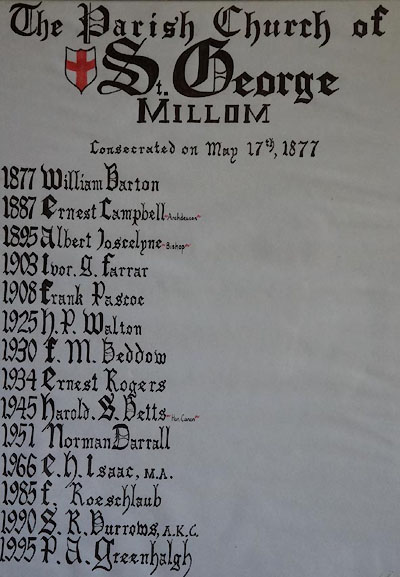 The Parish Church of
St. George
MILLOM
Consecrated on May 17th, 1877
1877 William Barton
1887 Ernest Campbell "Archdeacon"
1895 Albert Joscelyne "Bishop"
1903 Ivor. G. Farrar
1908 Frank Pascoe
1925 H. P. Walton
1930 F. M. Beddow
1934 Ernest Rogers
1945 Harold. S. Betts "Hon. Canon"
1951 Norman Darrall
1966 E. H. Isaac, M.A.
1985 F. Roeschlaub
1990 S. R. Burrows, A.K.C.
1995 P. A. Greenhalgh